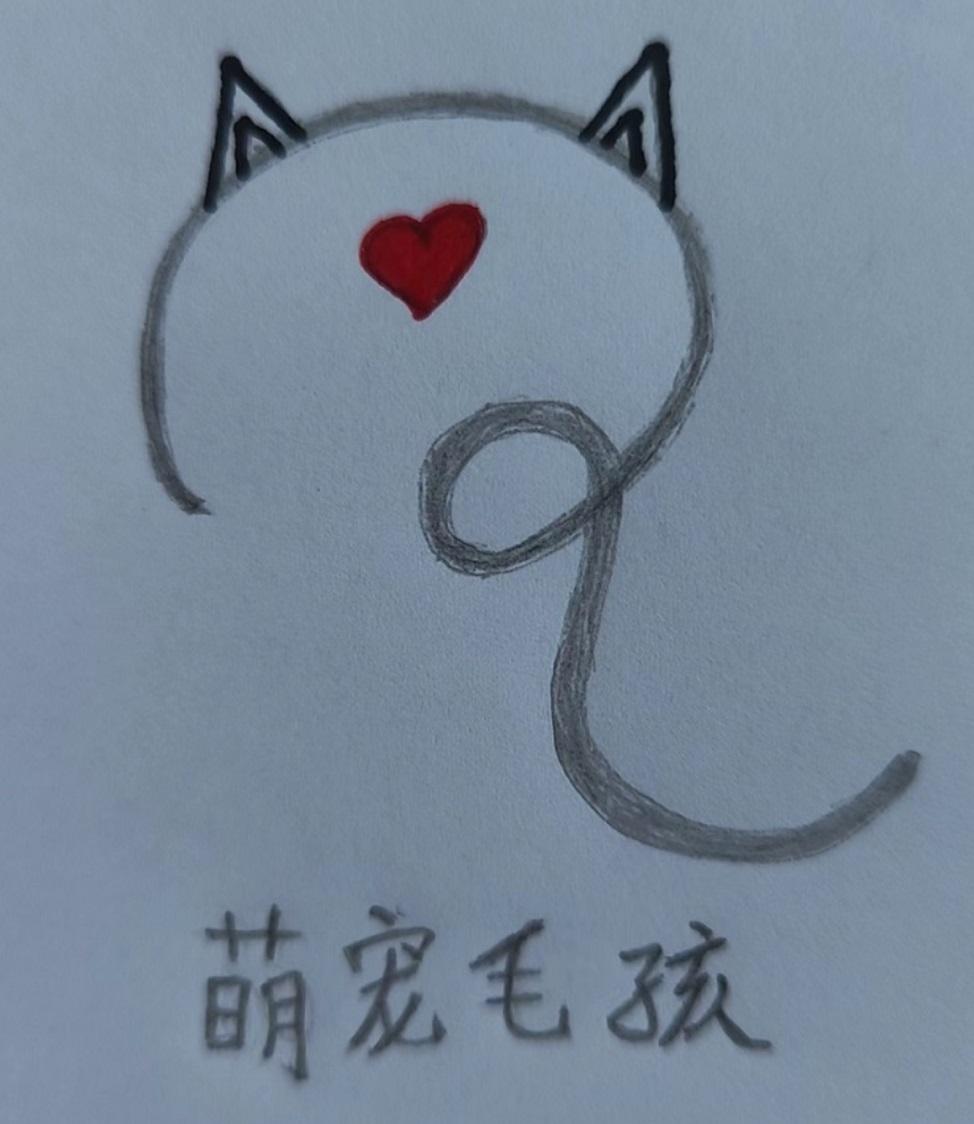 萌宠毛孩